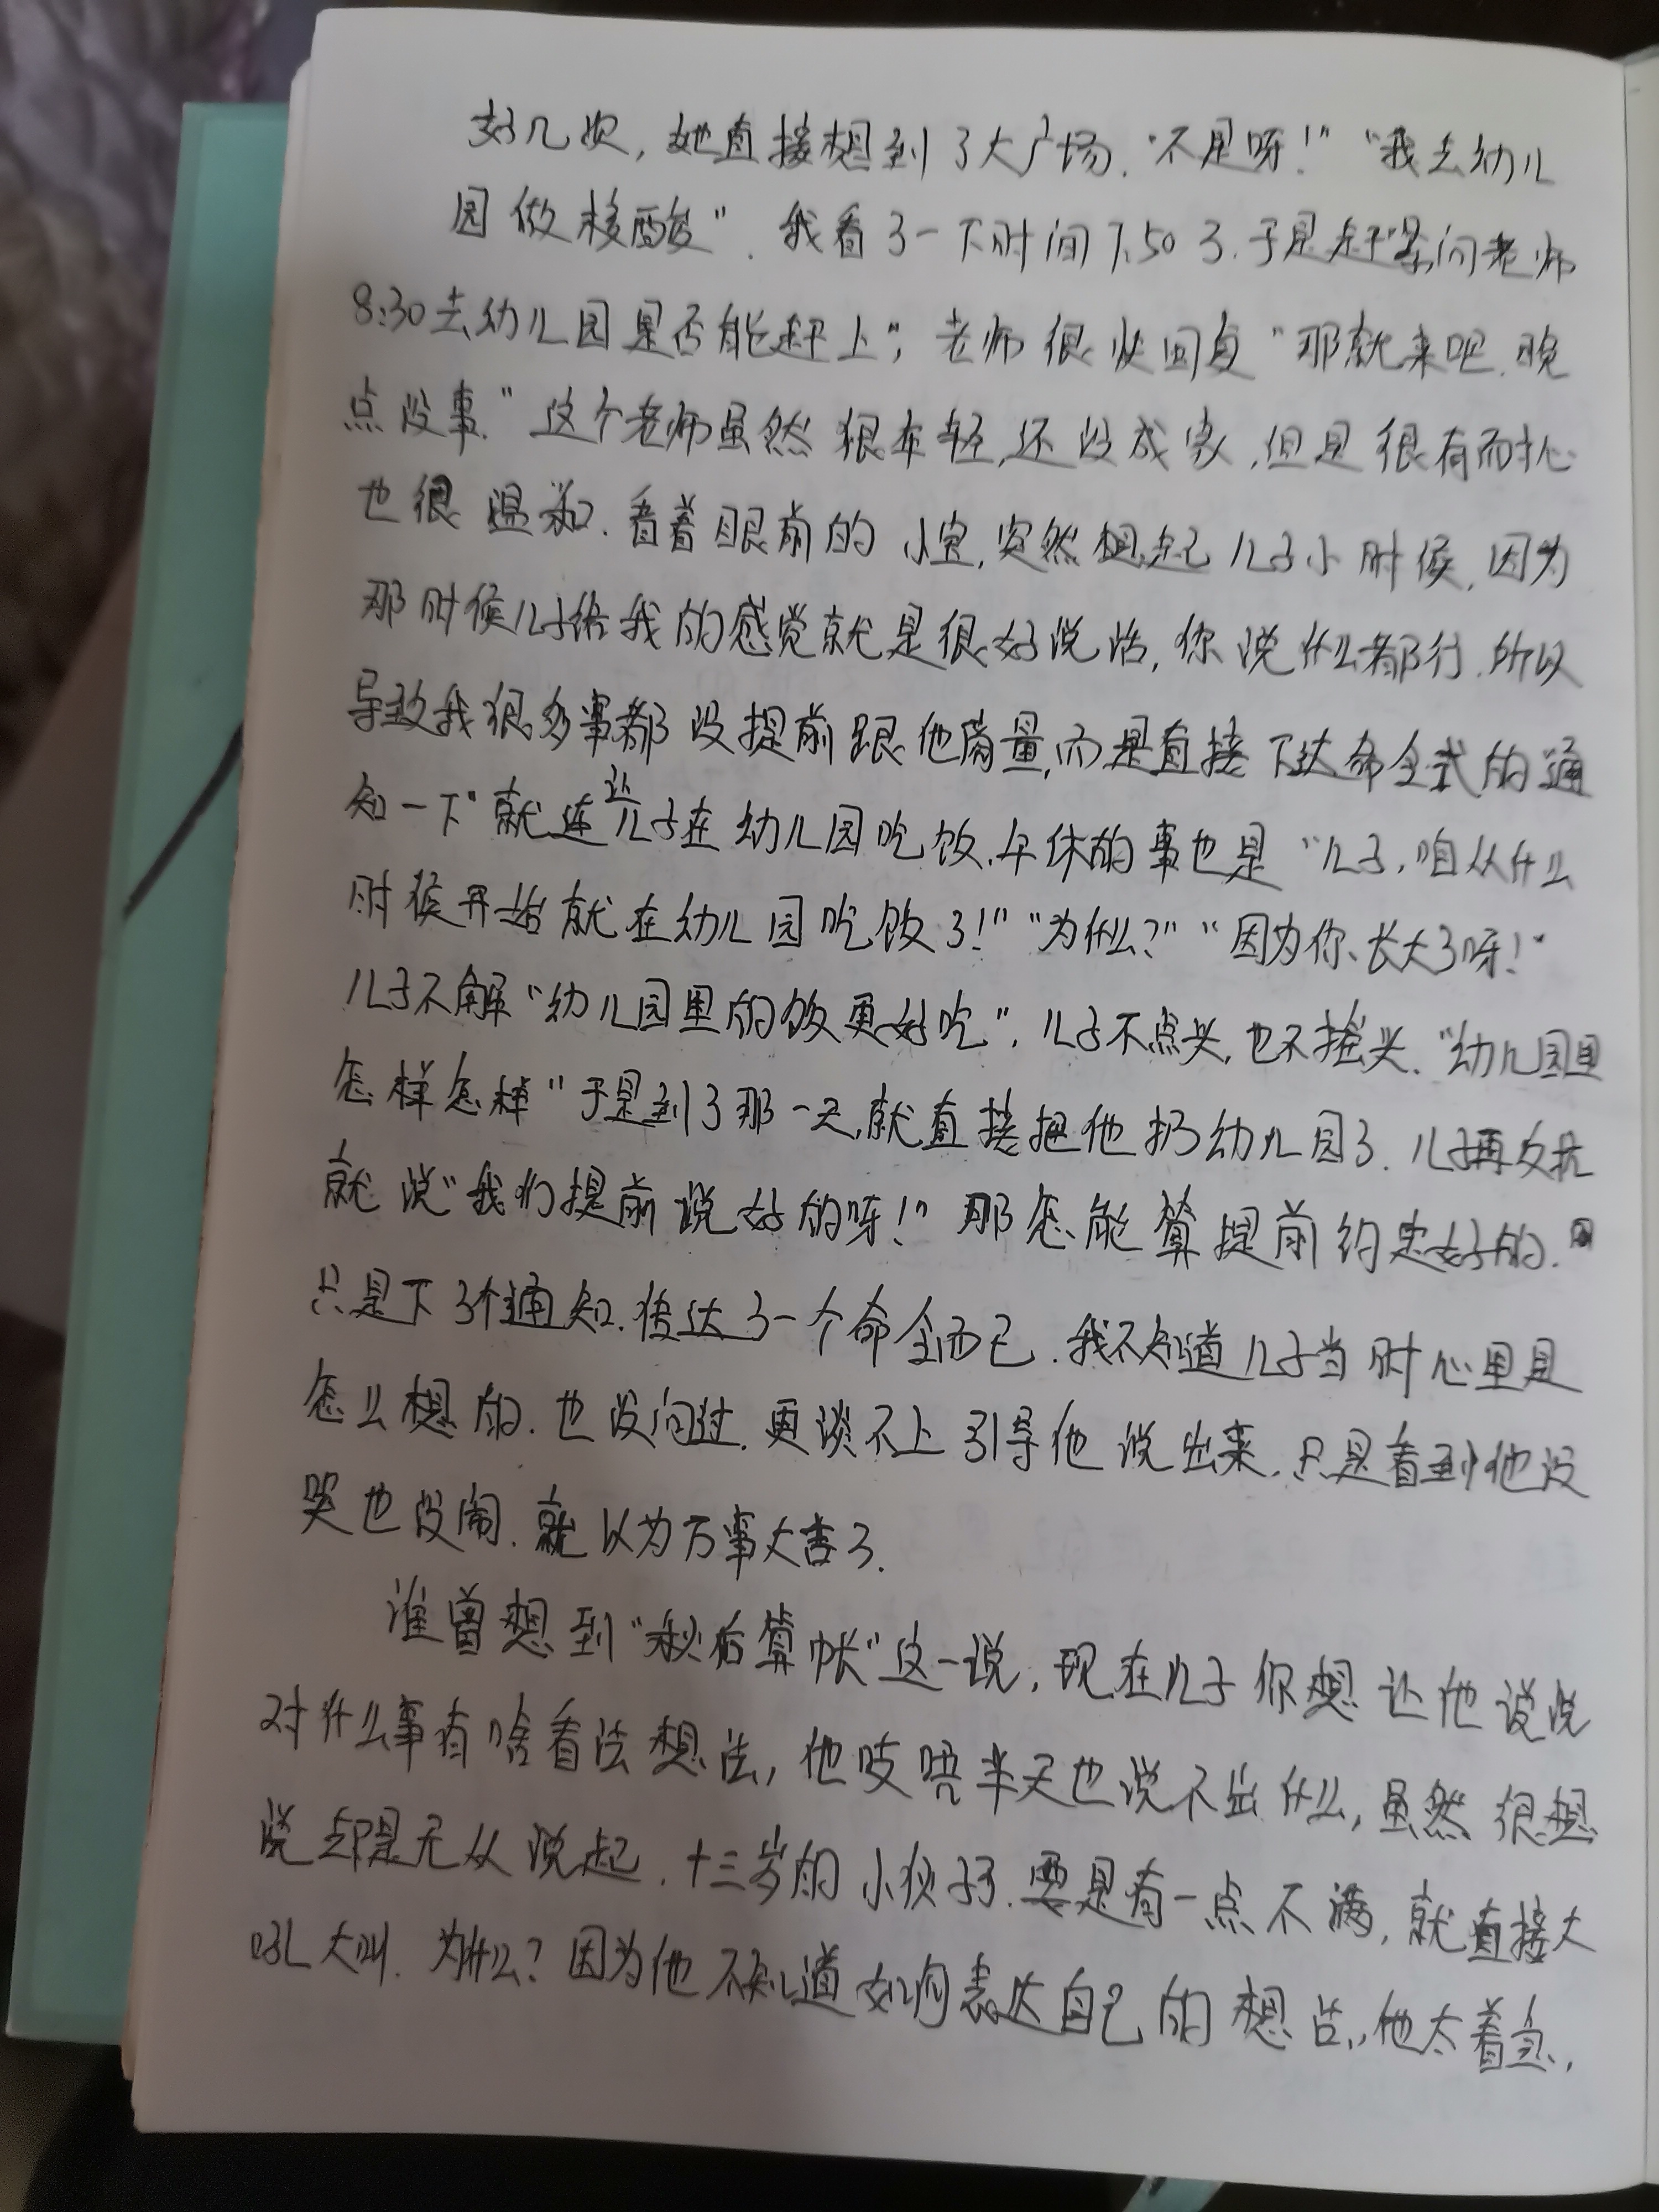 好几次，她直接想到了大广场．"不是呀！" "我去幼儿
园做核酸"．我看了一下时间7:50了．于是赶紧问老师
8:30去幼儿园是否能赶上"；老师很快回复"那就来吧．晚
点没事．"这个老师虽然很年轻，还没成家，但是很有耐心
也很温和．看着眼前的小宝，突然想起儿子小时候，因为
那时候儿子给我的感觉就是很好说话，你说什么都行．所以
导致我很多事都没提前跟他商量，而是直接下达命令式的通
知一下"就连让儿子在幼儿园吃饭、午休的事也是"儿子，咱从什么
时候开始就在幼儿园吃饭了！" "为什么？" "因为你长大了呀！"
儿子不解"幼儿园里的饭更好吃"．儿子不点头，也不摇头．"幼儿园里
怎样怎样"于是到了那一天，就直接把他扔幼儿园了．儿子再反抗
就说"我们提前说好的呀！"那怎能算提前约定好的．
只是下了个通知．传达了一个命令而已．我不知道儿子当时心里是
怎么想的．也没问过．更谈不上引导他说出来．只是看到他没
哭也没闹．就以为万事大吉了．
谁曾想到"秋后算帐"这一说，现在儿子你想让他说说
对什么事有啥看法想法，他吱唔半天也说不出什么，虽然很想
说却是无从说起．十三岁的小伙子了．要是有一点不满，就直接大
吼大叫．为什么？因为他不知道如何表达自己的想法，他太着急，